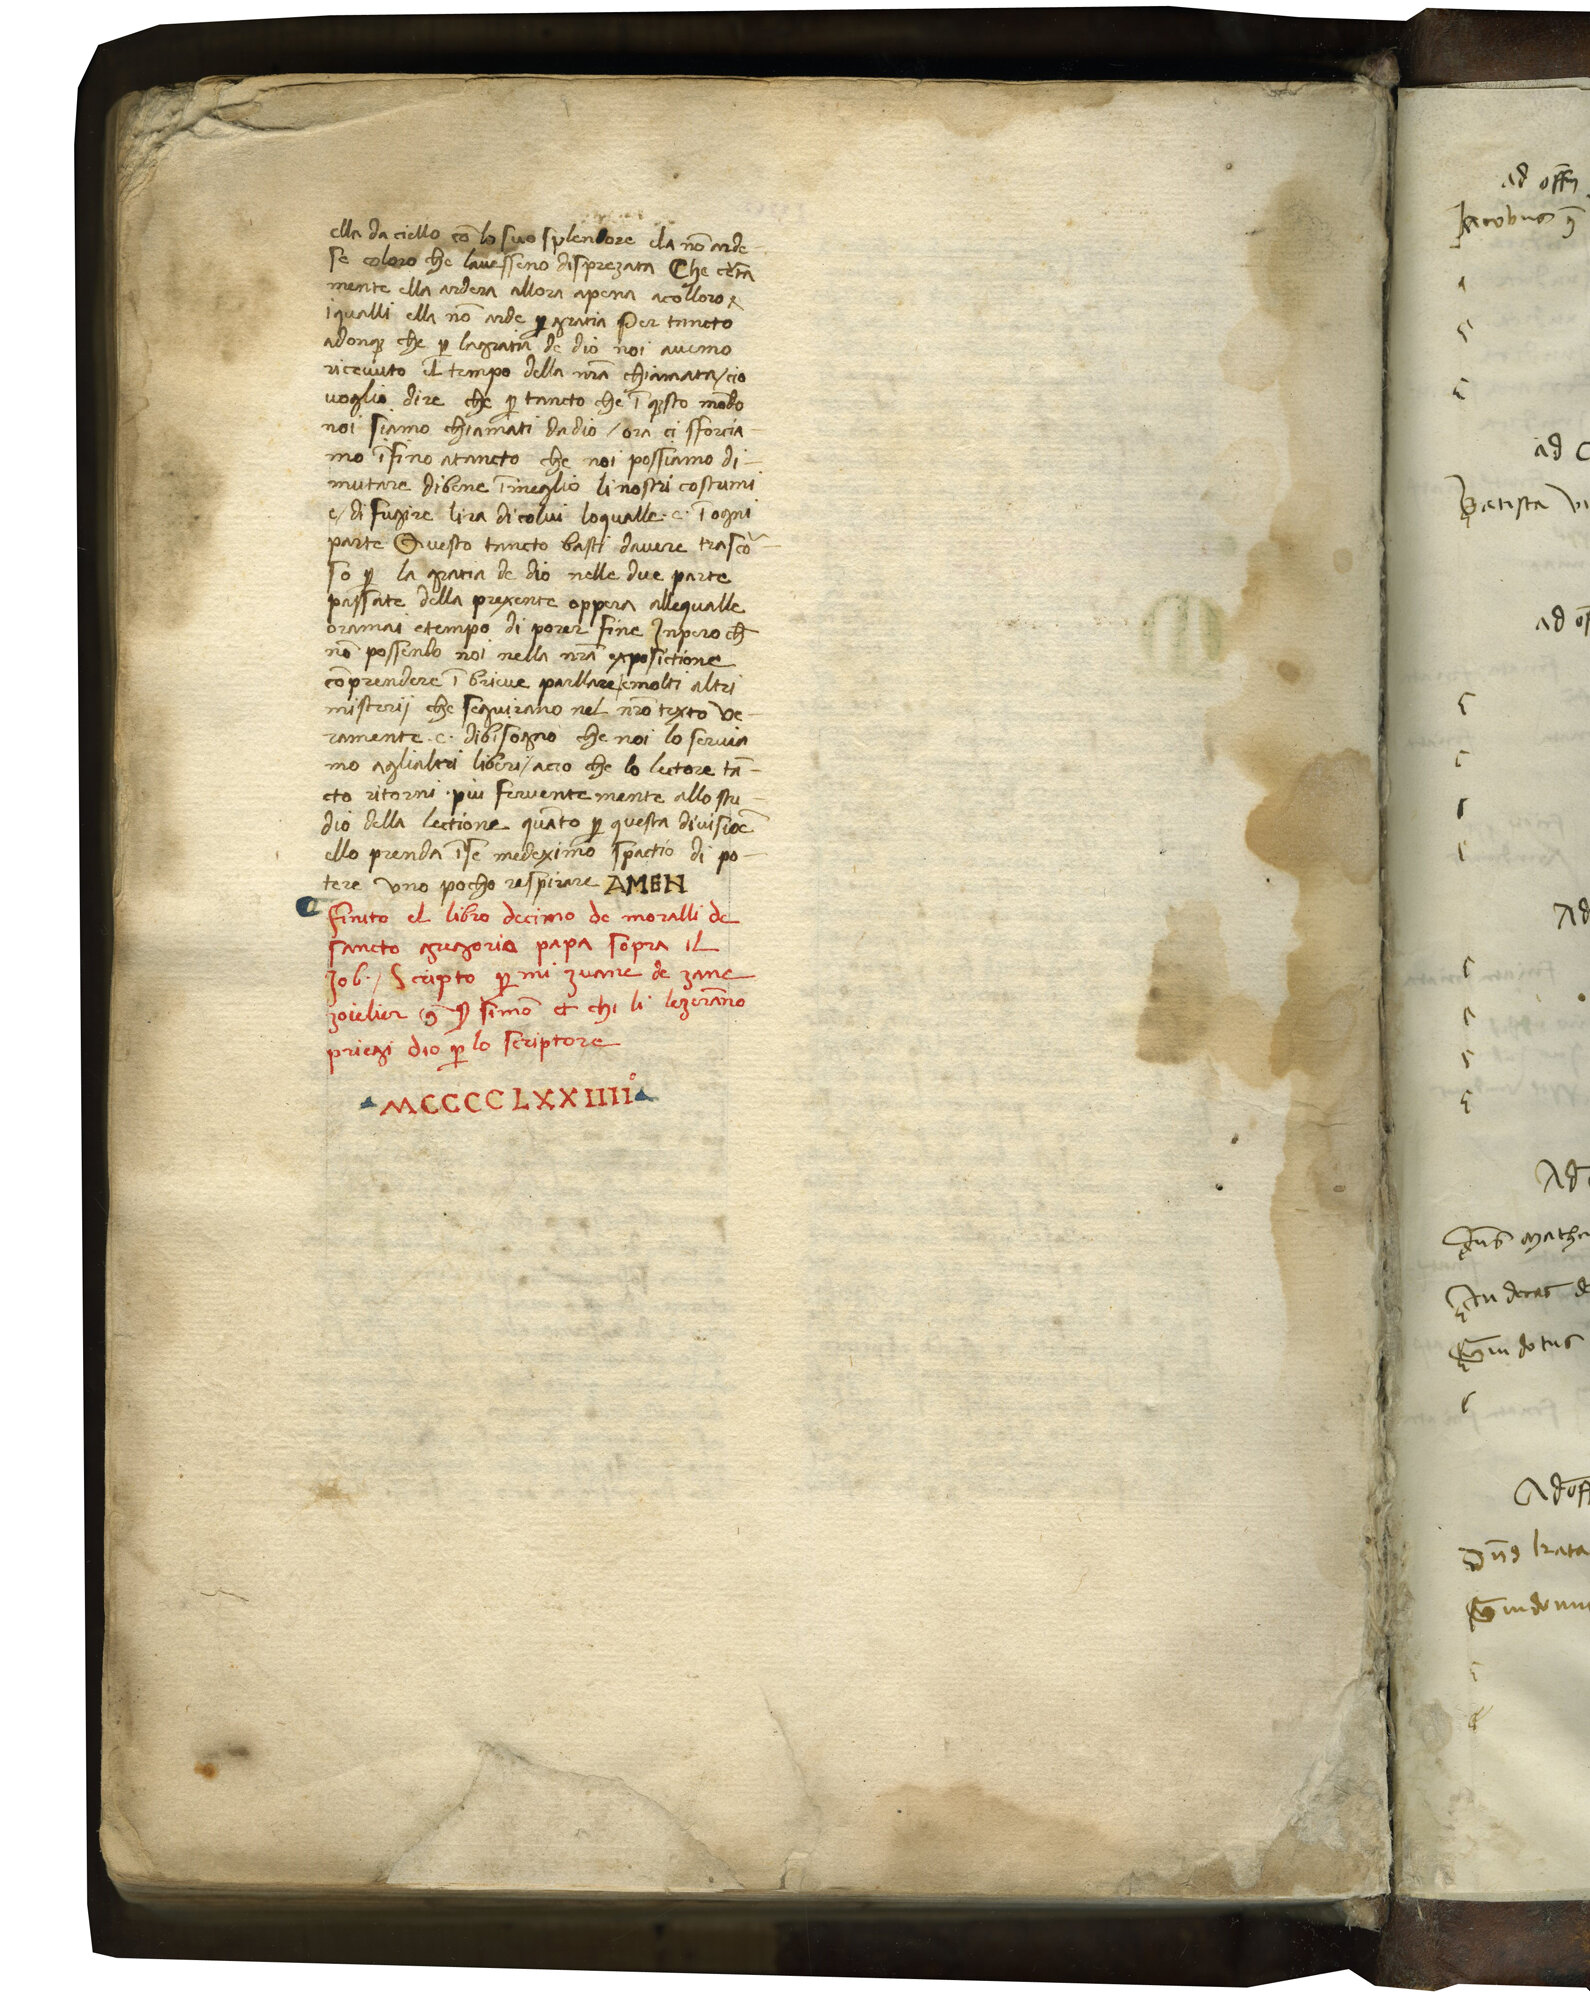 ella da ciello cō lo suo splendore ela nō arde-
se coloro che lauesseno disprezata Che certa
mente ella ardera allora apena acolloro
iqualli ella nō arde ꝑ gratia Per tancto
adonqȝ che ꝑ lagratia de dio noi auemo
riceuuto il tempo della nr̄a chiamata / cio
uoglio dire che ꝑ tancto che ī qūsto mōdo
noi siamo chiamati dadio / ora ci sforcia-
mo īfino atancto che noi possiamo di-
mutare dibene īmeglio li nostri costumi
e / di fugire lira di colui loqualle ·e· ī ogni
parte Questo tancto basti dauere trascō-
so ꝑ la gratia de dio nelle due parte
passate della prexente oppera allequalle
oramai etempo di porer fine Inpero ch̄
nō possendo noi nella nr̄a exposictione
cōprendere ī brieue parllare emolti altri
misterij che seguirano nel nr̄o texto Ve-
ramente ·e· dibisogno che noi lo seruia
mo aglialtri libri / acio che lo lectore tā-
cto ritorni piu feruente mente allo stu-
dio della lectione quāto ꝑ questa diuisioē
ello prenda īse medeximo spactio di po-
tere uno pocho respirare AMEN
Finito el libro decimo de moralli de
sancto gregorio papa sopra il
Job · / Scripto ꝑ mi zuane de zane
zoielier simō et chi li lezerāno
priegi dio ꝑ lo scriptore
MCCCCLXXIIIIº
ad offm̄
Jacobus
ad
Batista
ad
Ad
Ad
mathe
Ad off